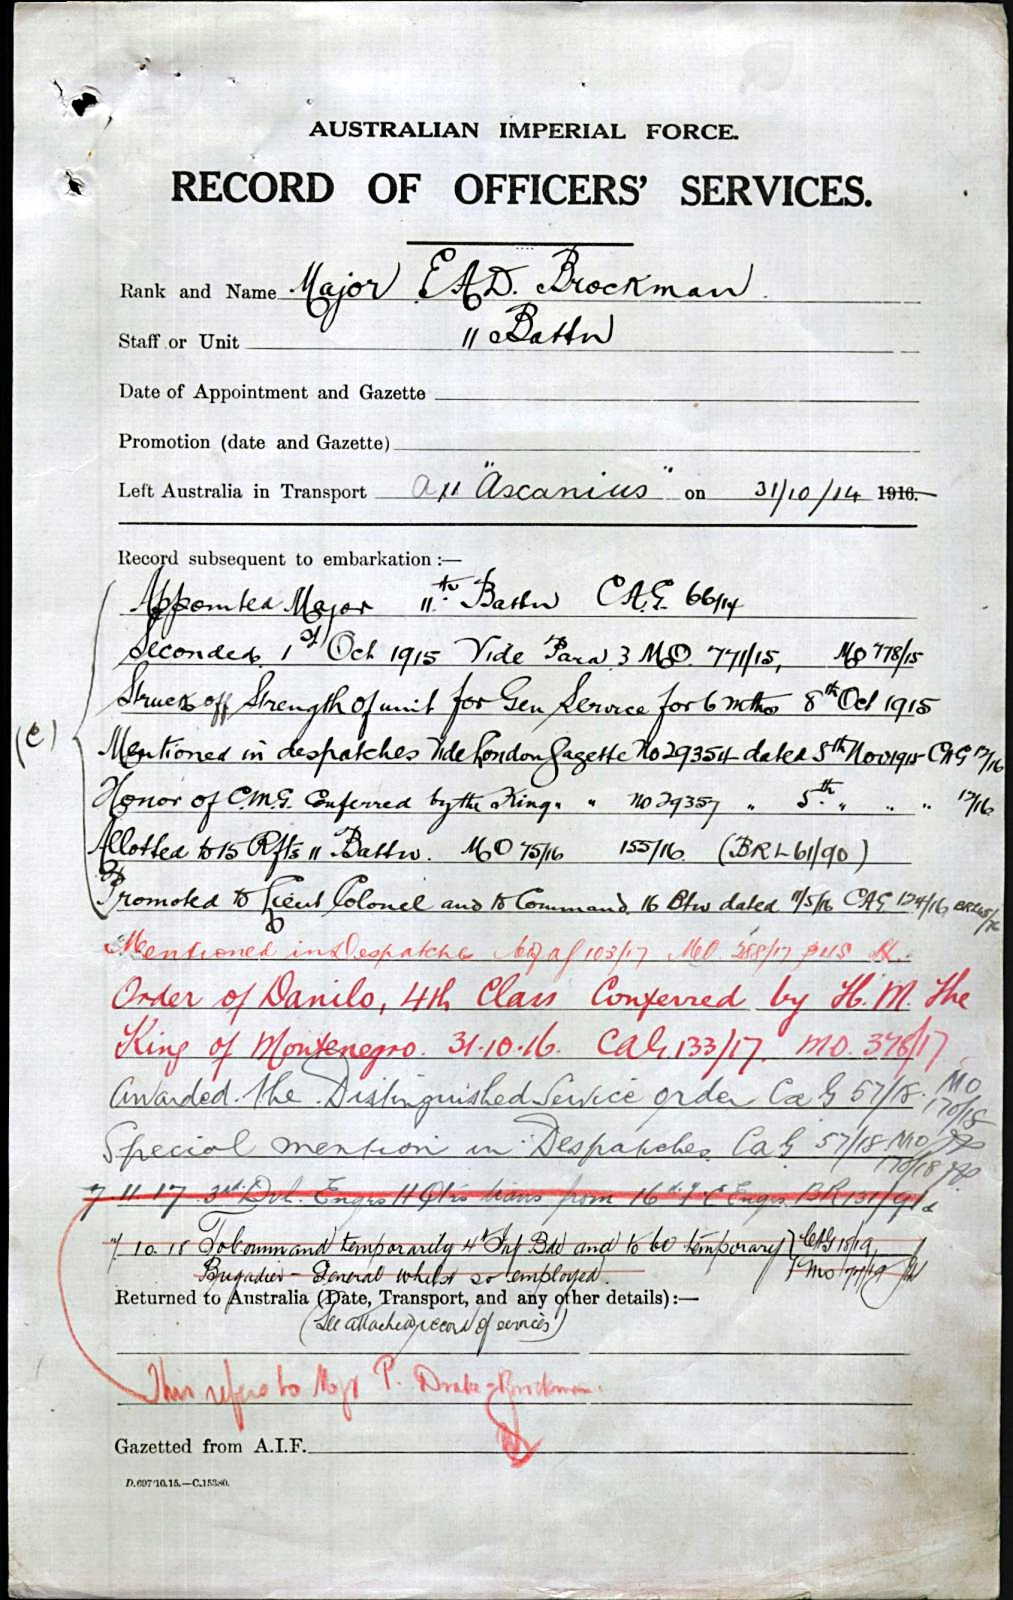 AUSTRALIAN IMPERIAL FORCE.
RECORD OF OFFICERS' SERVICES.
Rank and Name Major E A D. Brockman.
Staff or Unit 11 Battn
Date of Appointment and Gazette
Promotion (date and Gazette)
Left Australia in Transport "Ascanius" on 31/10/14 1916.
Record subsequent to embarkation :—
Appointed Major 11th Battn C.A.G. 66/14
Seconded 1st Oct 1915 Vide Para 3 MO. 771/15, MO 778/15
Struck off Strength of unit for Gen Service for 6 mths 8th Oct 1915
(e)
Mentioned in despatches Vide London Gazette No 29354 dated 5th Nov 1915 CAG 17/16
Honor of C.M.G. Conferred by the King " " No 29357 " 5th " " " 17/16
Allotted to 15 Rfts 11 Battn. MO 75/16 155/16 (BRL 61/90)
Promoted to Lieut Colonel and to Command 16 Btn dated 11/5/16 CAG 124/16
Mentioned in Despatches 103/17 MO. 288/17
Order of Danilo, 4th Class Conferred by H. M. The
King of Montenegro. 31.10.16. CAG. 133/17. MO. 378/17
Awarded the Distinguished Service order CaG 57/18. MO 170/18
Special mention in Despatches CaG 57/18 MO 170/18
7 11 17 3rd Div. Engrs from 16th F C Engrs BR 131/
7 10 18 To Command temporarily 4th Inf Bde and to be temporary } CAG 18/19
Brigadier-General whilst so employed. } MO 77/19
Returned to Australia (Date, Transport, and any other details):—
(See attached record of services)
This refers to Major P. Drake-Brockman.
Gazetted from A.I.F.
D.697/10.15.—C.15380.